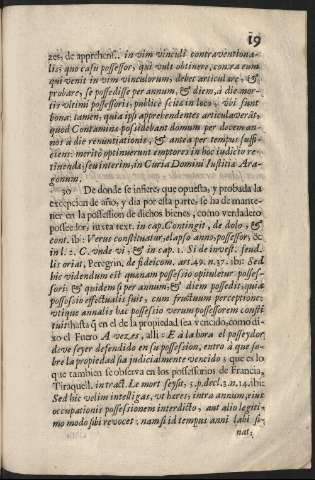 19
zes, de apprehens. in vim vinculi contraventiona-
lis; quo casu possessor, qui vult obtinere, contra eum
qui venit in vim vinculorum, debet articulare, &
probare, se possedisse per annum, & diem, a die mor-
tis vltimi possessoris, publicè scies in loco, vbi sunt
bona: tamen, quia ipsi apprehendentes articulaverāt,
quod Contamina possidebant domum per dovem an-
nos à die renuntiationis, & antea per tempus suffi-
ciens: meritò optinuerunt emptores in hoc iudicio re-
tinenda; seu interim, in Curia Domini Iustitiæ Ara-
gonum.
30 De donde se infiere, que opuesta, y probada la
excepcion de año, y dia por esta parte, se ha de mante-
ner en la possession de dichos bienes, como verdadero
posseedor, iuxta text. in cap. Contingit, de dolo, &
cont. ibi: Verus constituatur, elapso anno, possessor, &c
in l. 2. C. vnde vi, & in cap. 1. Si de invest. feud.
lis oriat, Peregrin. de fideicom. art. 49. n. 37. ibi: Sed
hic videndum est quanam possessio opituletur posses-
sori; & quidem si per annum, & diem possedit, quia
possessio effectualis fuit, cum fructuum perceptione;
vtique annalis hæc possessio verum possessorem consti
tuit: hasta q̃ en el de la propiedad sea vencido, como di-
xo el Fuero A vezes, alli: E à la hora el posseydor
deve seyer defendido en su possession, entro à que so-
bre la propiedad sia judicialmente vencido; que es lo
que tambien se observa en los possessorios de Francia,
Tiraquell. in tract. Le mort seysit, 5. p. decl. 3. n. 14. ibi:
Sed hic velim intelligas, vt heres, intra annum, eius
occupationis possessionem interdicto, aut alio legiti-
mo modo sibi revocet: nam si id tempus anni labi si-
nat;